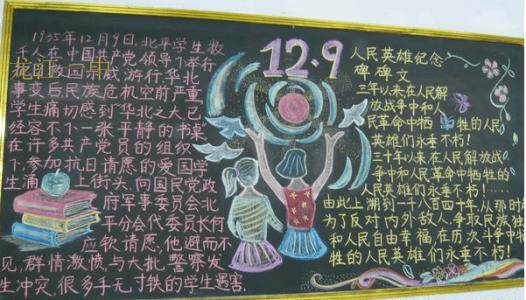 1935年12月9日,北平学生数
千人在中国共产党领导下举行
抗日救国示威游行.华北
事变后民族危机空前严重
学生痛切感到“华北之大已
经容不下一张平静的书桌
在许多共产党员的组织
下,参加抗日请愿的爱国学
生涌上街头,向国民党政
府军事委员会北
平分会代委员长何
应钦请愿.他避而不
见,群情激愤,与大批警察发
生冲突,很多手无寸铁的学生遇害.
龙江一中
12.9
人民英雄纪念
碑碑文
三年以来在人民解
放战争中和人
民革命中牺牲的人民
英雄们永垂不朽!
三十年以来在人民解放战
争中和人民革命中牺牲的
人民英雄们永垂不朽!
由此上溯到一千八百四十年,从那时
为了反对内外敌人,争取民族独
和人民自由幸福,在历次斗争中
牲的人民英雄们永垂不朽!